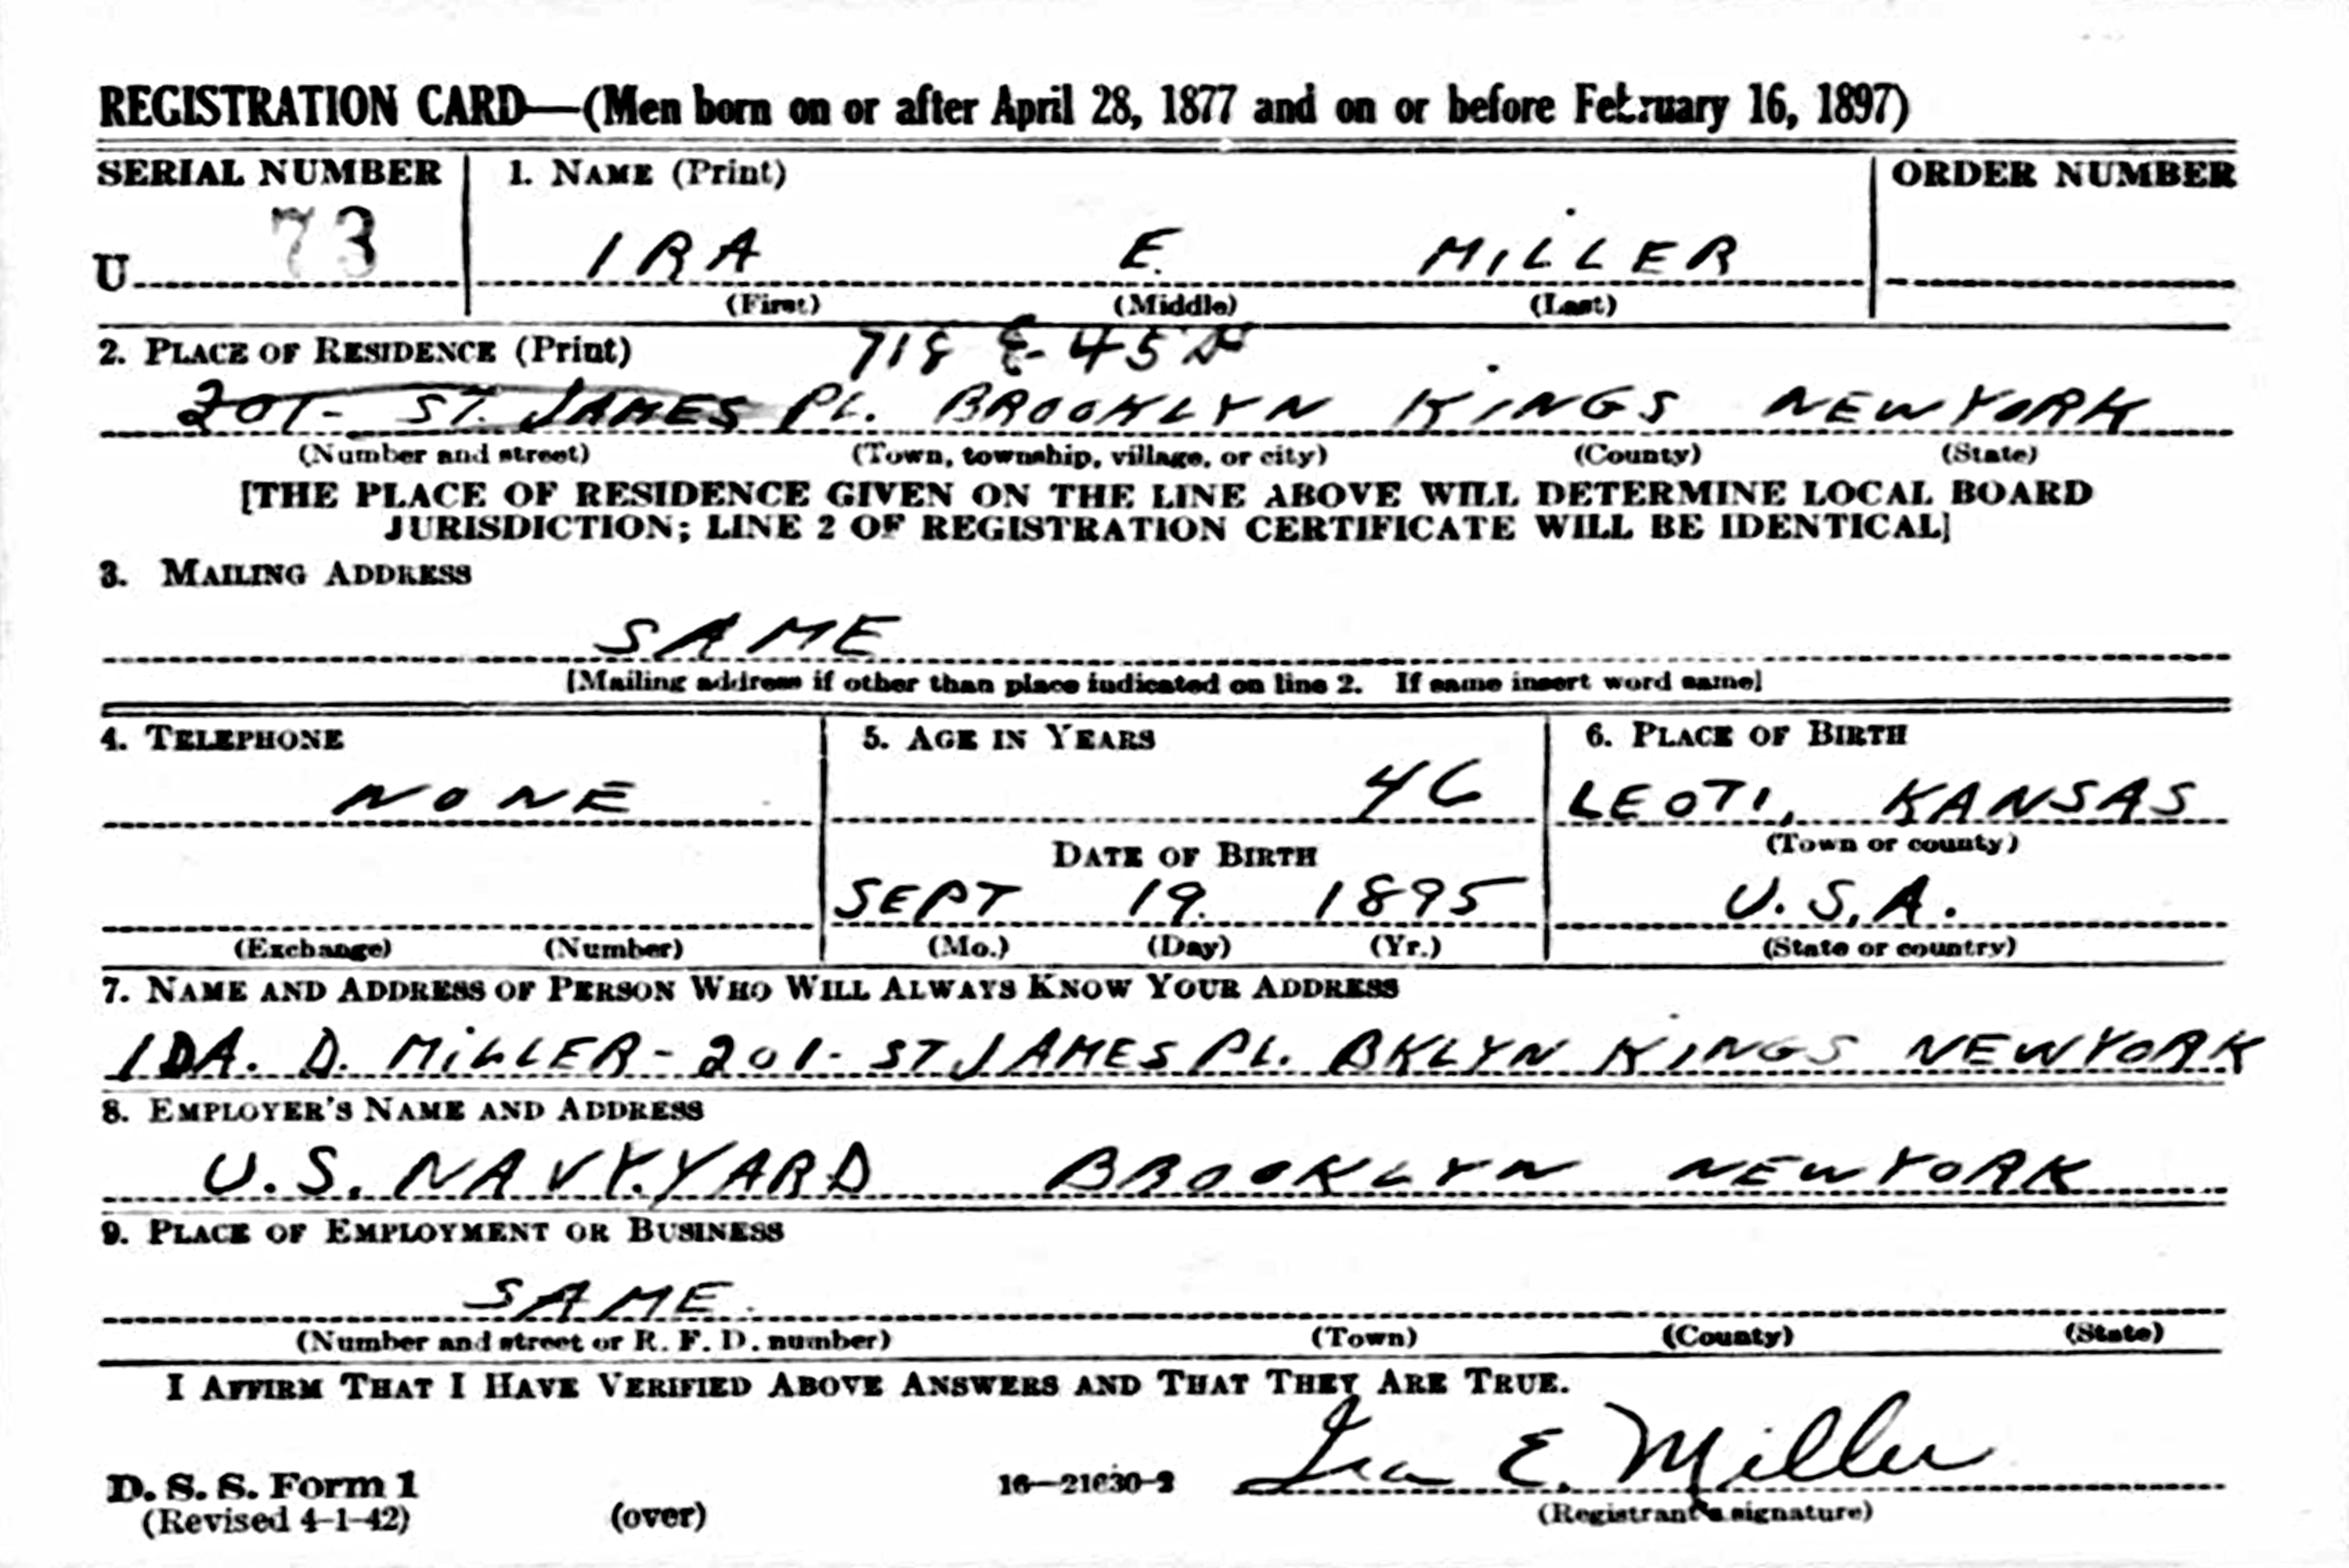 REGISTRATION CARD—(Men born on or after April 28, 1877 and on or before February 16, 1897)
SERIAL NUMBER 1. NAME (Print) ORDER NUMBER
U 73 IRA E. MILLER
(First) (Middle) (Last)
2. PLACE OF RESIDENCE (Print) 718 E- 45
201- ST. JAMES PL. BROOKLYN KINGS NEW YORK
(Number and street) (Town, township, village, or city) (County) (State)
[THE PLACE OF RESIDENCE GIVEN ON THE LINE ABOVE WILL DETERMINE LOCAL BOARD
JURISDICTION; LINE 2 OF REGISTRATION CERTIFICATE WILL BE IDENTICAL]
3. MAILING ADDRESS
SAME
[Mailing address if other than place indicated on line 2. If same insert word same]
4. TELEPHONE 5. AGE IN YEARS 6. PLACE OF BIRTH
NONE 46 LEOTI, KANSAS
DATE OF BIRTH (Town or county)
SEPT 19. 1895 U.S.A.
(Exchange) (Number) (Mo.) (Day) (Yr.) (State or country)
7. NAME AND ADDRESS OF PERSON WHO WILL ALWAYS KNOW YOUR ADDRESS
IDA. D. MILLER- 201- ST JAMES PL. BKLYN KINGS NEW YORK
8. EMPLOYER'S NAME AND ADDRESS
U.S. NAVY.YARD BROOKLYN NEW YORK
9. PLACE OF EMPLOYMENT OR BUSINESS
SAME.
(Number and street or R. F. D. number) (Town) (County) (State)
I AFFIRM THAT I HAVE VERIFIED ABOVE ANSWERS AND THAT THEY ARE TRUE.
Ira E. Miller
D. S. S. Form 1 16—21630-2
(Revised 4-1-42) (over) (Registrant's signature)